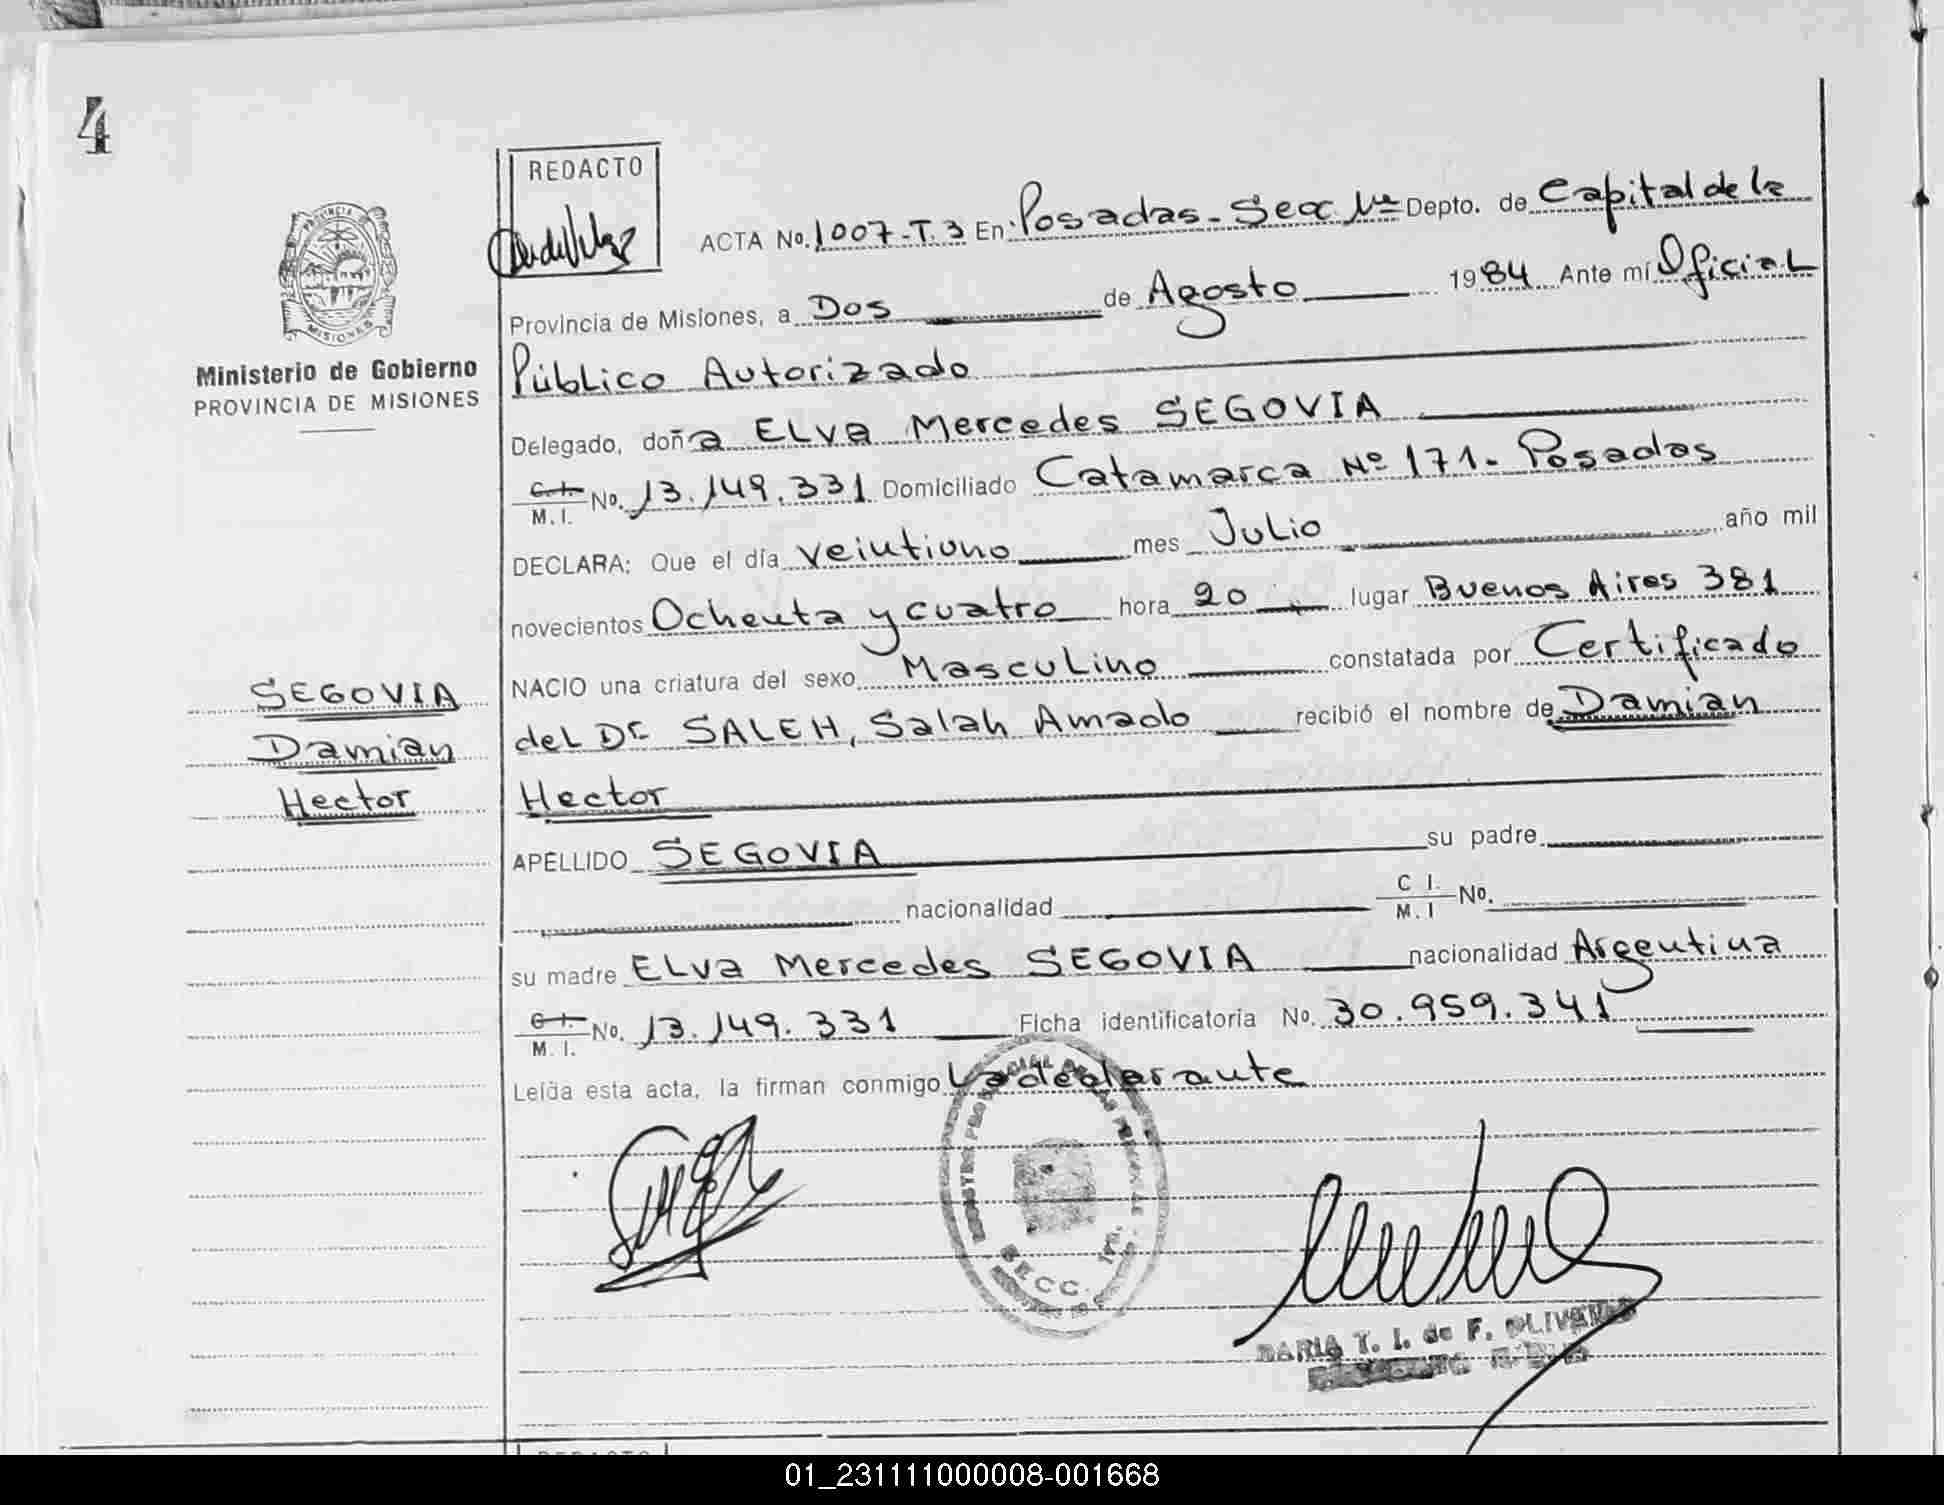 4
REDACTO
PROVINCIA DE
MISIONES
Ministerio de Gobierno
PROVINCIA DE MISIONES
SEGOVIA
Damian
Hector
ACTA No. 1007-T.3 En Posadas-Secc 1ra Depto. de Capital de la
Provincia de Misiones, a Dos de Agosto 1984 Ante mí Oficial
Público Autorizado
Delegado, doña ELva Mercedes SEGOVIA
C.I.
M.I. No. 13.149.331 Domiciliado Catamarca Nº 171- Posadas
DECLARA: Que el día veintiuno mes Julio año mil
novecientos Ochenta y cuatro hora 20 lugar Buenos Aires 381
NACIO una criatura del sexo Masculino constatada por Certificado
del Dr SALEH, Salah Amado recibió el nombre de Damian
Hector
APELLIDO SEGOVIA su padre
nacionalidad C I. M.I No.
su madre ELva Mercedes SEGOVIA nacionalidad Argentina
C.I.
M.I. No. 13.149.331 Ficha identificatoria No. 30.959.341
Leída esta acta, la firman conmigo La declarante
REGISTRO PROVINCIAL DE LAS PERSONAS
SECC. 1ra.
MARIA T. I. de F. OLIVEIRA
REDACTO
01_231111000008-001668